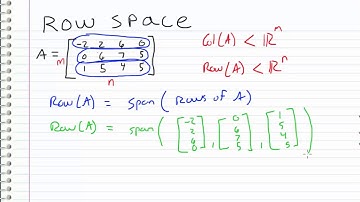 Row space
A = m [ -2 2 6 0
0 6 7 5
1 5 4 5 ]
n
Col(A) < ℝ^m
Row(A) < ℝ^n
Row(A) = span ( rows of A )
Row(A) = span ( [ -2 2 6 0 ] , [ 0 6 7 5 ] , [ 1 5 4 5 ] )